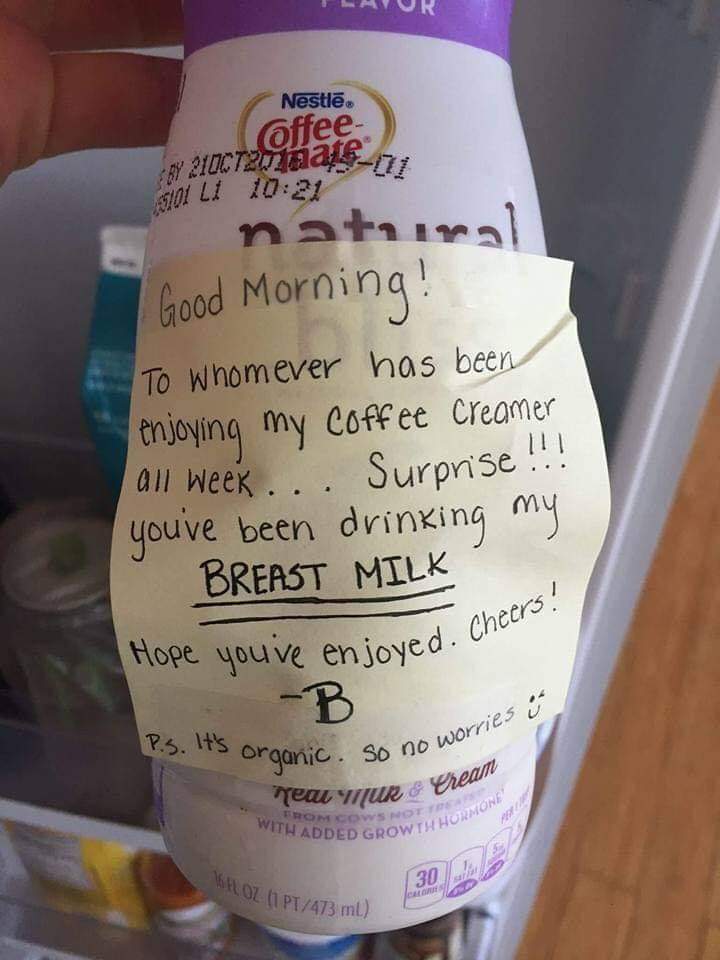 FLAVOR
Nestlé®
Coffee-
mate®
E BY 21OCT2016 49-01
35101 L1 10:21
natural
bliss
Good Morning!
To whomever has been
enjoying my coffee creamer
all week... Surprise!!!
you've been drinking my
BREAST MILK
Hope you've enjoyed. Cheers!
-B
P.S. It's organic. So no worries
Real Milk & Cream
FROM COWS NOT TREATED
WITH ADDED GROWTH HORMONE
PER 1
30
CALORIES
1g
SAT FAT
5
16 FL OZ (1 PT/473 mL)